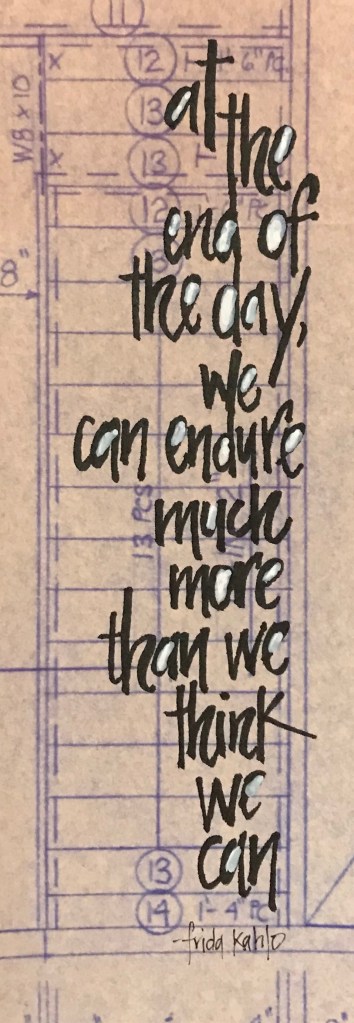 11
12 6" PC
W8 x 10
x
13
at
x
13
the
12
end of
8"
the day,
we
can endure
13 PCS
much
more
than we
think
we
can
13
14 1'-4" PC
-frida kahlo